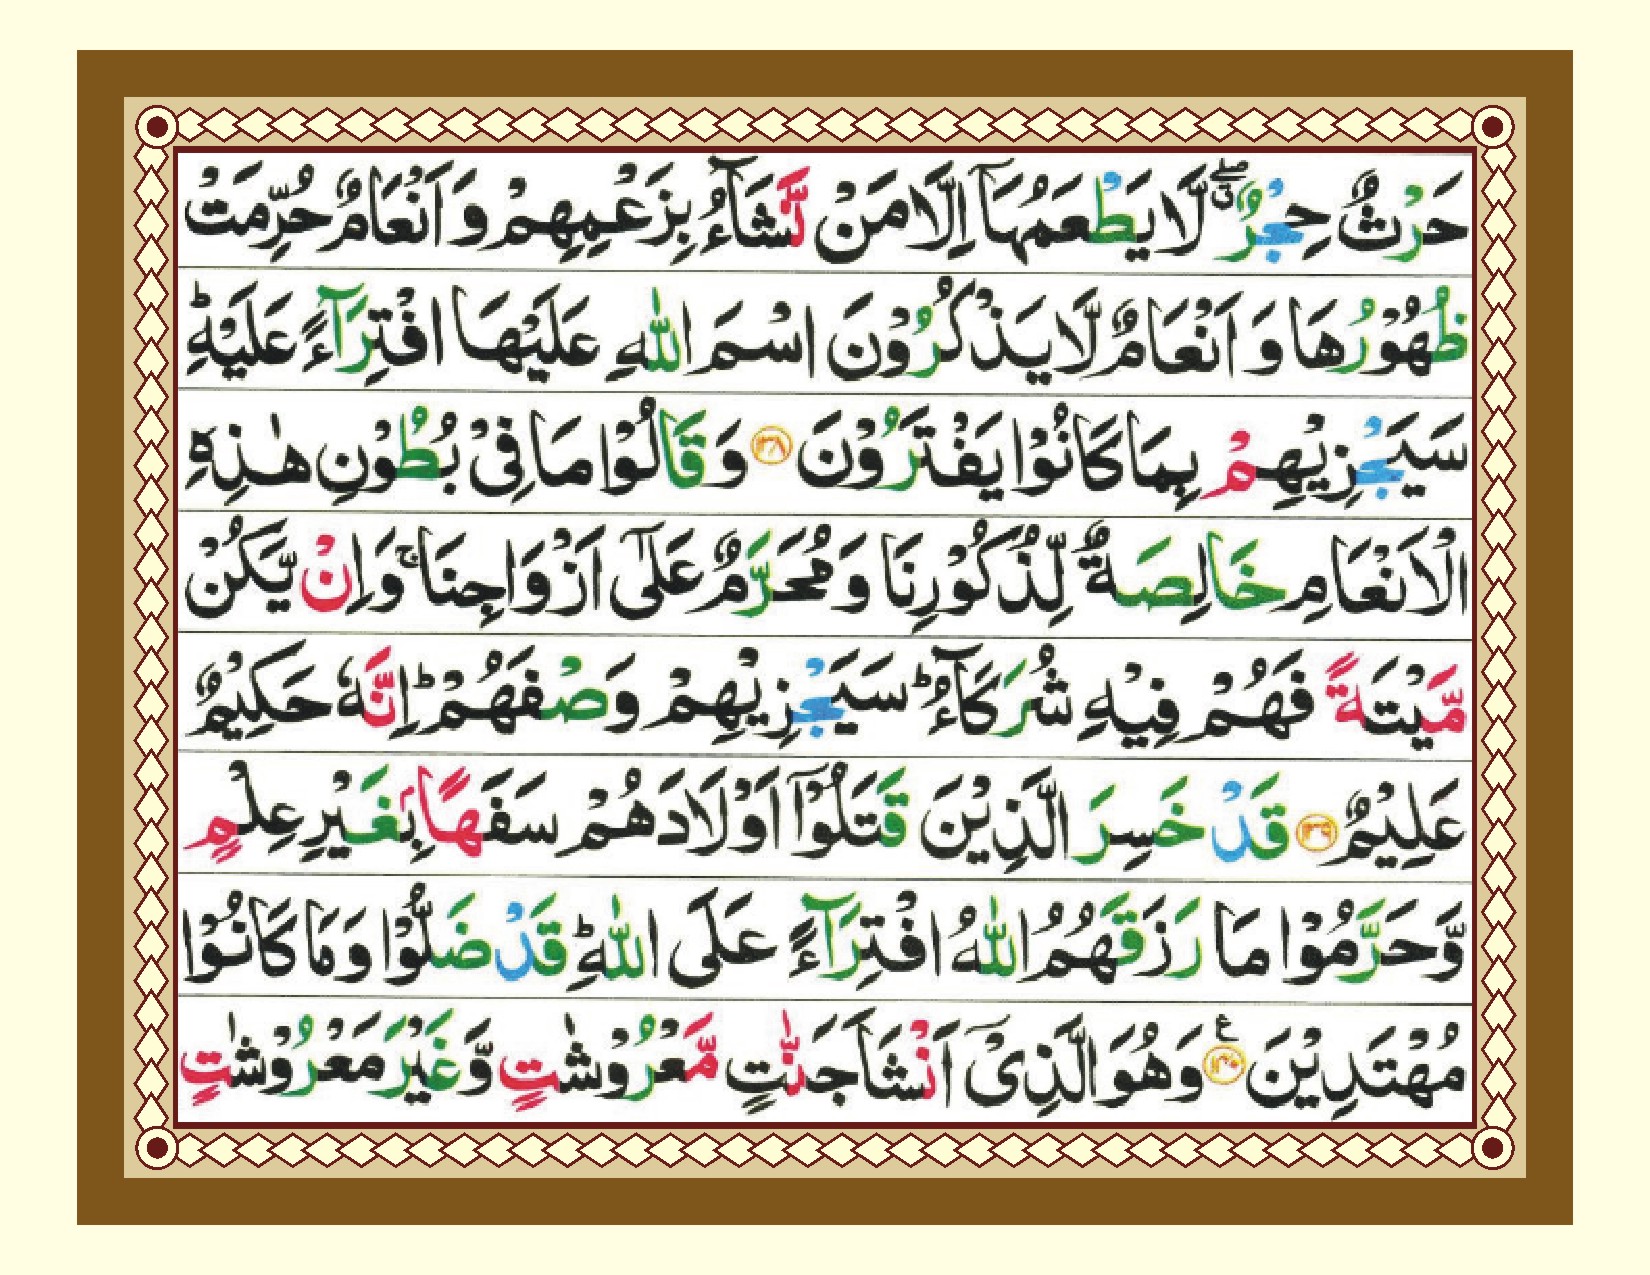 حَرْثٌ حِجْرٌ ۖق لَّا یَطْعَمُهَاۤ اِلَّا مَنْ نَّشَآءُ بِزَعْمِهِمْ وَ اَنْعَامٌ حُرِّمَتْ
ظُهُوْرُهَا وَ اَنْعَامٌ لَّا یَذْكُرُوْنَ اسْمَ اللّٰهِ عَلَیْهَا افْتِرَآءً عَلَیْهِ ؕ
سَیَجْزِیْهِمْ بِمَا كَانُوْا یَفْتَرُوْنَ ۝۱۳۸ وَ قَالُوْا مَا فِیْ بُطُوْنِ هٰذِهِ
الْاَنْعَامِ خَالِصَةٌ لِّذُكُوْرِنَا وَ مُحَرَّمٌ عَلٰۤی اَزْوَاجِنَا ۚ وَ اِنْ یَّكُنْ
مَّیْتَةً فَهُمْ فِیْهِ شُرَكَآءُ ؕ سَیَجْزِیْهِمْ وَصْفَهُمْ ؕ اِنَّهٗ حَكِیْمٌ
عَلِیْمٌ ۝۱۳۹ قَدْ خَسِرَ الَّذِیْنَ قَتَلُوْۤا اَوْلَادَهُمْ سَفَهًۢا بِغَیْرِ عِلْمٍ
وَّ حَرَّمُوْا مَا رَزَقَهُمُ اللّٰهُ افْتِرَآءً عَلَی اللّٰهِ ؕ قَدْ ضَلُّوْا وَ مَا كَانُوْا
مُهْتَدِیْنَ ۝۱۴۰ ع وَ هُوَ الَّذِیْۤ اَنْشَاَ جَنّٰتٍ مَّعْرُوْشٰتٍ وَّ غَیْرَ مَعْرُوْشٰتٍ